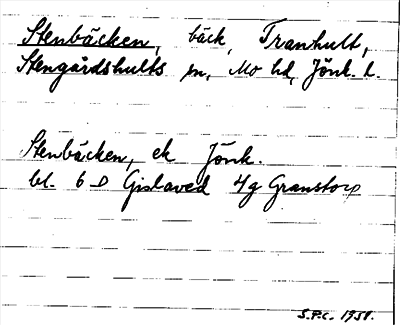 Stenbäcken, bäck, Tranhult,
Stengårdshults sn, Mo hd, Jönk. l.
Stenbäcken, ek Jönk.
bl. 6 D Gislaved 4g Granstorp
S.P.C. 1951.